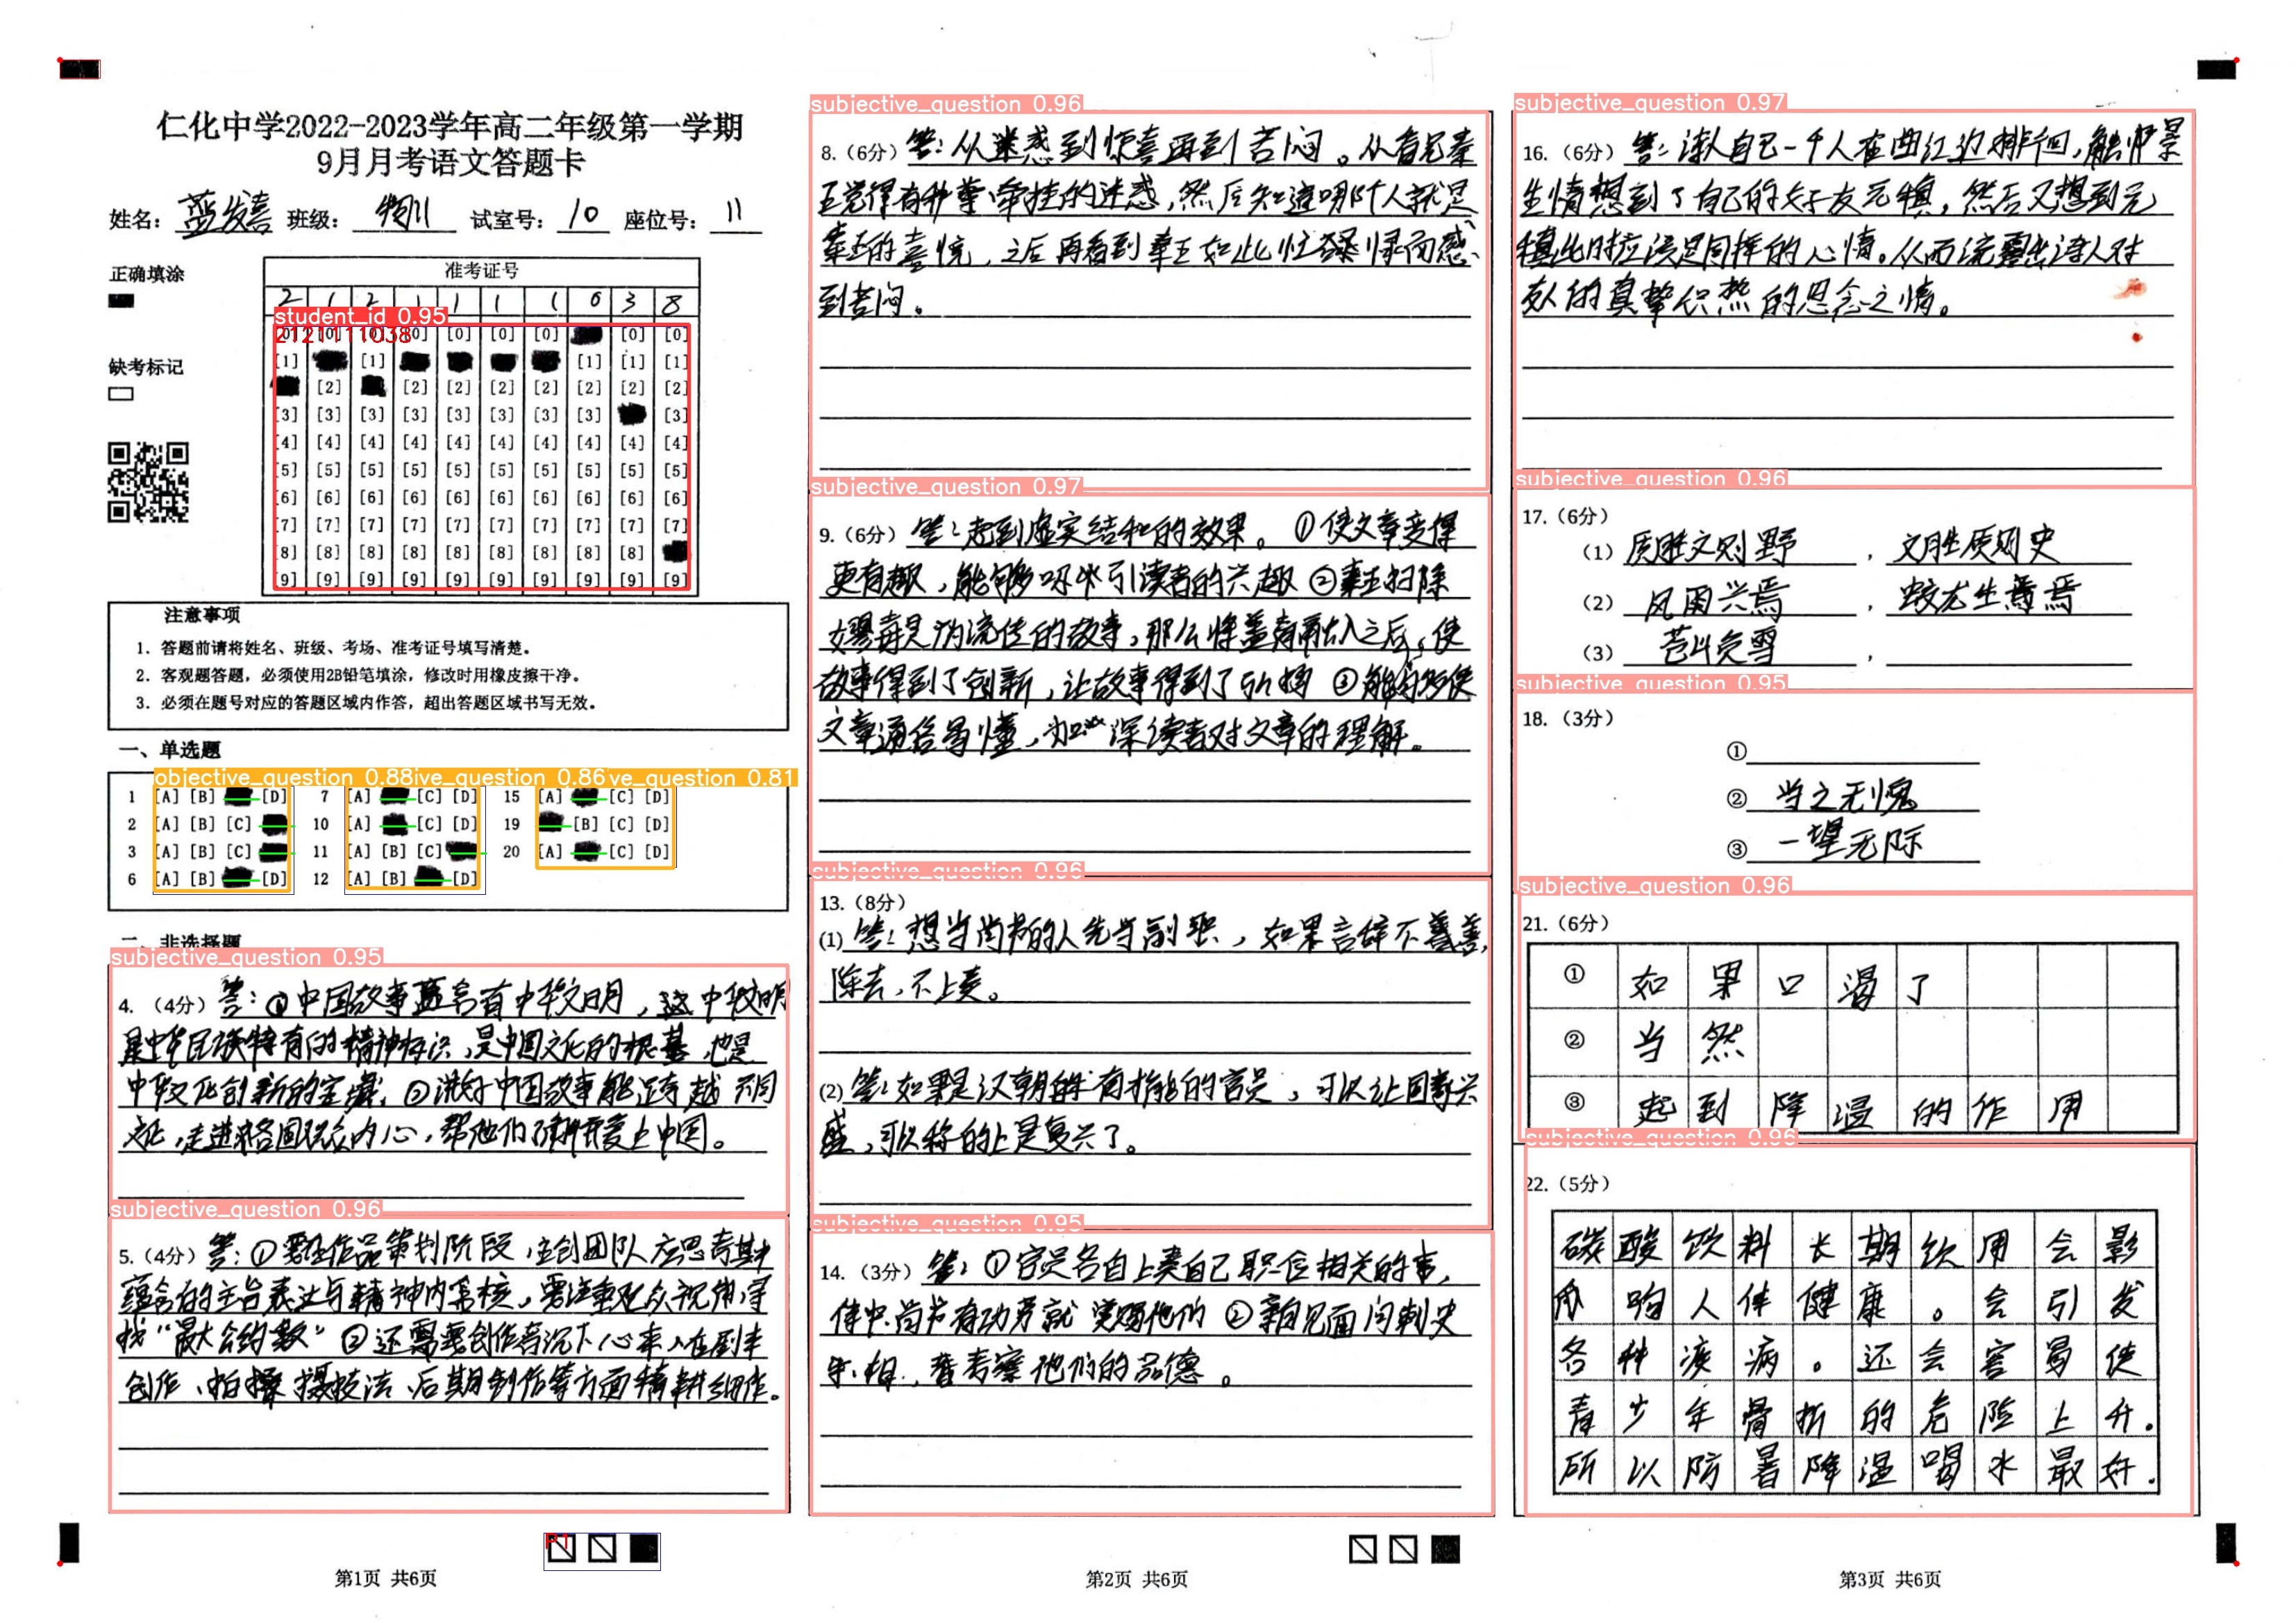 仁化中学2022-2023学年高二年级第一学期
9月月考语文答题卡
姓名: 蓝发喜 班级: 试室号: 10 座位号: 11
正确填涂
准考证号
2 1 2 1 1 1 1 0 3 8
student_id 0.95
2121111038
[0] [0] [0] [0] [0] [0] [0] [0] [0]
[1] [1] [1] [1] [1]
缺考标记
[2] [2] [2] [2] [2] [2] [2] [2]
[3] [3] [3] [3] [3] [3] [3] [3] [3]
[4] [4] [4] [4] [4] [4] [4] [4] [4] [4]
[5] [5] [5] [5] [5] [5] [5] [5] [5] [5]
[6] [6] [6] [6] [6] [6] [6] [6] [6] [6]
[7] [7] [7] [7] [7] [7] [7] [7] [7] [7]
[8] [8] [8] [8] [8] [8] [8] [8] [8]
[9] [9] [9] [9] [9] [9] [9] [9] [9] [9]
注意事项
1. 答题前请将姓名、班级、考场、准考证号填写清楚。
2. 客观题答题，必须使用2B铅笔填涂，修改时用橡皮擦干净。
3. 必须在题号对应的答题区域内作答，超出答题区域书写无效。
一、单选题
objective_question 0.88 ive_question 0.86 ve_question 0.81
1 [A] [B] [D] 7 [A] [C] [D] 15 [A] [C] [D]
2 [A] [B] [C] 10 [A] [C] [D] 19 [B] [C] [D]
3 [A] [B] [C] 11 [A] [B] [C] 20 [A] [C] [D]
6 [A] [B] [D] 12 [A] [B] [D]
二、非选择题
subjective_question 0.95
4. （4分）答: ①中国故事蕴含有中华文明，中华文明
是中华民族特有的精神标识，是中国文化的根基，也是
中华文化创新的宝藏。②讲好中国故事能跨越不同
文化，走进各国民众内心，帮他们了解并爱上中国。
subjective_question 0.96
5.（4分）答: ①要在作品策划阶段，主创团队应思考其中
蕴含的主旨表达与精神内核，要注重观众视角，寻
找“最大公约数”②还需要创作者沉下心来，在剧本
创作、拍摄技法、后期制作等方面精耕细作。
P1
第1页 共6页
subjective_question 0.96
8.（6分）答: 从迷惑到惊喜再到苦闷。从看见秦
王觉得有种牵挂的迷惑，然后知道哪个人就是
秦王的喜悦，之后再看到秦王如此狂暴 而感
到苦闷。
subjective_question 0.97
9.（6分）答: 起到虚实结和的效果。①使文章变得
更有趣，能够吸引读者的兴趣②秦王扫除
嫪毐是为流传的故事，那么将盖聂融入之后，使
故事得到了创新，让故事得到了 ③能够使
文章通俗易懂，加深读者对文章的理解。
subjective_question 0.96
13.（8分）
(1) 答: 想当尚书的人先当副职，如果言辞不善，
除去，不上奏。
(2) 答: 如果是汉朝的 有才能的官员，可以让国家兴
盛，可以称的上是复兴了。
subjective_question 0.95
14. （3分）答: ①官员各自上奏自己职位相关的事，
侍中、尚书有功劳就 奖赐他们 ②亲自见面问刺史
守相，考察他们的品德。
第2页 共6页
subjective_question 0.97
16. （6分）答: 诗人自己一个人在曲江边徘徊，触景
生情想到了自己的好友元稹，然后又想到元
稹此时应该是同样的心情。从而流露出诗人对
友人的真挚 热的思念之情。
subjective_question 0.96
17.（6分）
（1）质胜文则野，文胜质则史
（2）风雨兴焉，蛟龙生焉
（3）苍山负雪，
subjective_question 0.95
18. （3分）
①
② 当之无愧
③ 一望无际
subjective_question 0.96
21.（6分）
① 如果口渴了
② 当然
③ 起到降温的作用
subjective_question 0.96
22.（5分）
碳酸饮料长期饮用会影
响人体健康。会引发
各种疾病。还会容易使
青少年骨折的危险上升。
所以防暑降温喝水最好。
第3页 共6页